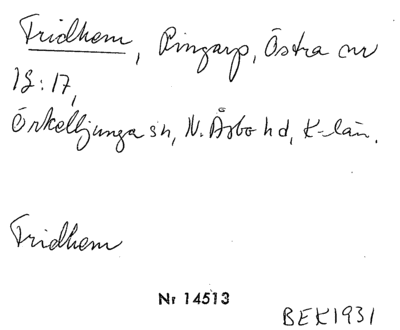 Fridhem, Pingarp, Östra nr
18:17,
Örkelljunga sn, N. Åsbo hd, K-län.
Fridhem
Nr 14513
BEK1931